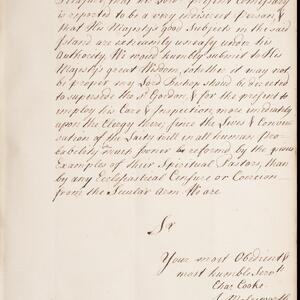 that the Sd. present Commissary
is reported to be a very indiscreet Person, &
that His Majesty's good Subjects in the said
Island are extremely uneasy under his
Authority. We would humbly submit to His
Majesty's great Wisdom, whether it may not
be proper my Lord Bishop should be directed
to supersede Mr. Gordon, & for the present to
employ his Care & Inspection more immediately
upon the Clergy there; since the Lives & Conver-
sation of the Laity will in all human Pro-
bability much sooner be reformed by the good
Examples of their Spiritual Pastors, than
by any Ecclesiastical Censure or Coercion
from the Secular Arm. We are
Sr
Your most Obedient &
most humble Servts.
Char. Cooke.
J. Molesworth